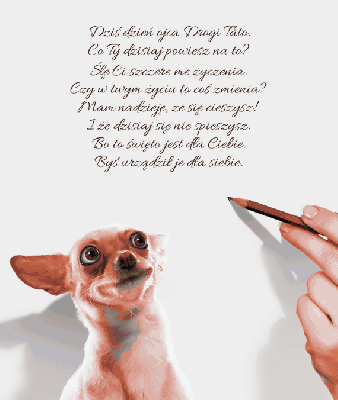 Dziś dzień ojca Drogi Tato.
Co Ty dzisiaj powiesz na to?
Ślę Ci szczere me życzenia.
Czy w twym życiu to coś zmienia?
Mam nadzieje, ze się cieszysz!
I że dzisiaj się nie spieszysz.
Bo to święto jest dla Ciebie.
Byś urządził je dla siebie.